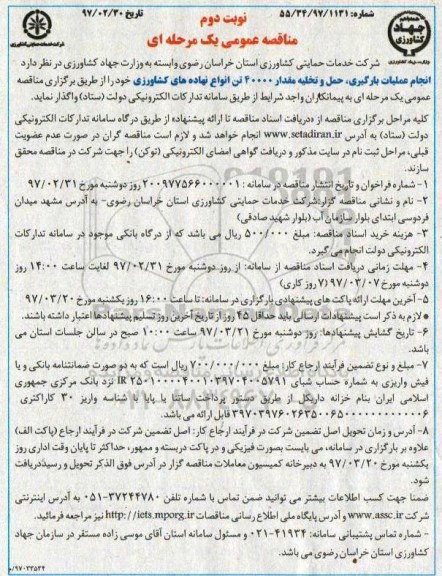 شماره: ۵۵/۳۴/۹۷/۱۱۳۱
نوبت دوم
تاریخ ۹۷/۰۲/۳۰
مناقصه عمومی یک مرحله ای
جهاد کشاورزی
شرکت خدمات حمایتی کشاورزی
شرکت خدمات حمایتی کشاورزی استان خراسان رضوی وابسته به وزارت جهاد کشاورزی در نظر دارد
انجام عملیات بارگیری، حمل و تخلیه مقدار ۴۰۰۰۰ تن انواع نهاده های کشاورزی خود را از طریق برگزاری مناقصه
عمومی یک مرحله ای به پیمانکاران واجد شرایط از طریق سامانه تدارکات الکترونیکی دولت (ستاد) واگذار نماید.
کلیه مراحل برگزاری مناقصه از دریافت اسناد مناقصه تا ارائه پیشنهاده از طریق درگاه سامانه تدارکات الکترونیکی
دولت (ستاد) به آدرس www.setadiran.ir انجام خواهد شد و لازم است مناقصه گران در صورت عدم عضویت
قبلی، مراحل ثبت نام در سایت مذکور و دریافت گواهی امضای الکترونیکی (توکن) را جهت شرکت در مناقصه محقق
سازند.
۱- شماره فراخوان و تاریخ انتشار مناقصه در سامانه : ۲۰۰۹۷۷۵۶۶۰۰۰۰۰۱ روز دوشنبه مورخ ۹۷/۰۲/۳۱
۲- نام و نشانی مناقصه گزار:شرکت خدمات حمایتی کشاورزی استان خراسان رضوی- به آدرس مشهد میدان
فردوسی ابتدای بلوار سازمان آب (بلوار شهید صادقی)
۳- هزینه خرید اسناد مناقصه: مبلغ ۵۰۰/۰۰۰ ریال می باشد که از درگاه بانکی موجود در سامانه تدارکات
الکترونیکی دولت انجام می گیرد.
۴- مهلت زمانی دریافت اسناد مناقصه از سامانه: از روز دوشنبه مورخ ۹۷/۰۲/۳۱ لغایت ساعت ۱۴:۰۰ روز
دوشنبه مورخ ۹۷/۰۳/۰۷ (۷ روز کاری)
۵- آخرین مهلت ارائه پاکت های پیشنهادی بارگزاری در سامانه: تا ساعت ۱۶:۰۰ روز یکشنبه مورخ ۹۷/۰۳/۲۰
• لازم به ذکر است پیشنهادات ارسالی باید حداقل ۴۵ روز از تاریخ آخرین روز تسلیم پیشنهادها اعتبار داشته باشند.
۶- تاریخ گشایش پیشنهادها: روز دوشنبه مورخ ۹۷/۰۳/۲۱ ساعت ۱۰:۰۰ صبح در سالن جلسات استان می
باشد.
۷- مبلغ و نوع تضمین فرآیند ارجاع کار: مبلغ ۷۰۰/۰۰۰/۰۰۰ ریال است که به دو صورت ضمانتنامه بانکی و یا
فیش واریزی به شماره حساب شبای IR ۲۵۰۱۰۰۰۰۴۰۰۱۰۳۹۷۰۴۰۰۵۷۹۱ نزد بانک مرکزی جمهوری
اسلامی ایران بنام خزانه داریکل از طریق دستور پرداخت ساتنا یا پایا با شناسه واریز ۳۰ کاراکتری
قابل ارائه می باشد.
۸- آدرس و زمان تحویل اصل تضمین شرکت در فرآیند ارجاع کار: اصل تضمین شرکت در فرآیند ارجاع (پاکت الف)
علاوه بر بارگذاری در سامانه، می بایست بصورت فیزیکی و در پاکت دربسته و ممهور، حداکثر تا پایان وقت اداری روز
یکشنبه مورخ ۹۷/۰۳/۲۰ به دبیرخانه کمیسیون معاملات مناقصه گزار در آدرس فوق الذکر تحویل و رسیددریافت
شود.
ضمنا جهت کسب اطلاعات بیشتر می توانید ضمن تماس با شماره تلفن ۳۷۲۴۴۷۸۰-۰۵۱ به آدرس اینترنتی
شرکت www.assc.ir و آدرس پایگاه ملی اطلاع رسانی مناقصات http://iets.mporg.ir نیز مراجعه فرمائید.
- شماره تماس پشتیبانی سامانه: ۴۱۹۳۴-۰۲۱ و مسئول سامانه استان آقای موسی زاده مستقر در سازمان جهاد
کشاورزی استان خراسان رضوی می باشد.
۹۷۰۲۳۵۲۴/م